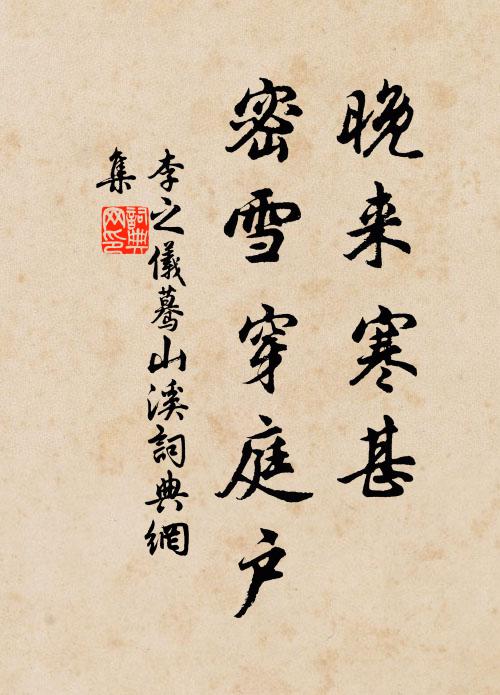 晚来寒甚
密雪穿庭户
李之儀蓦山溪詞典網
集
詞典
网印